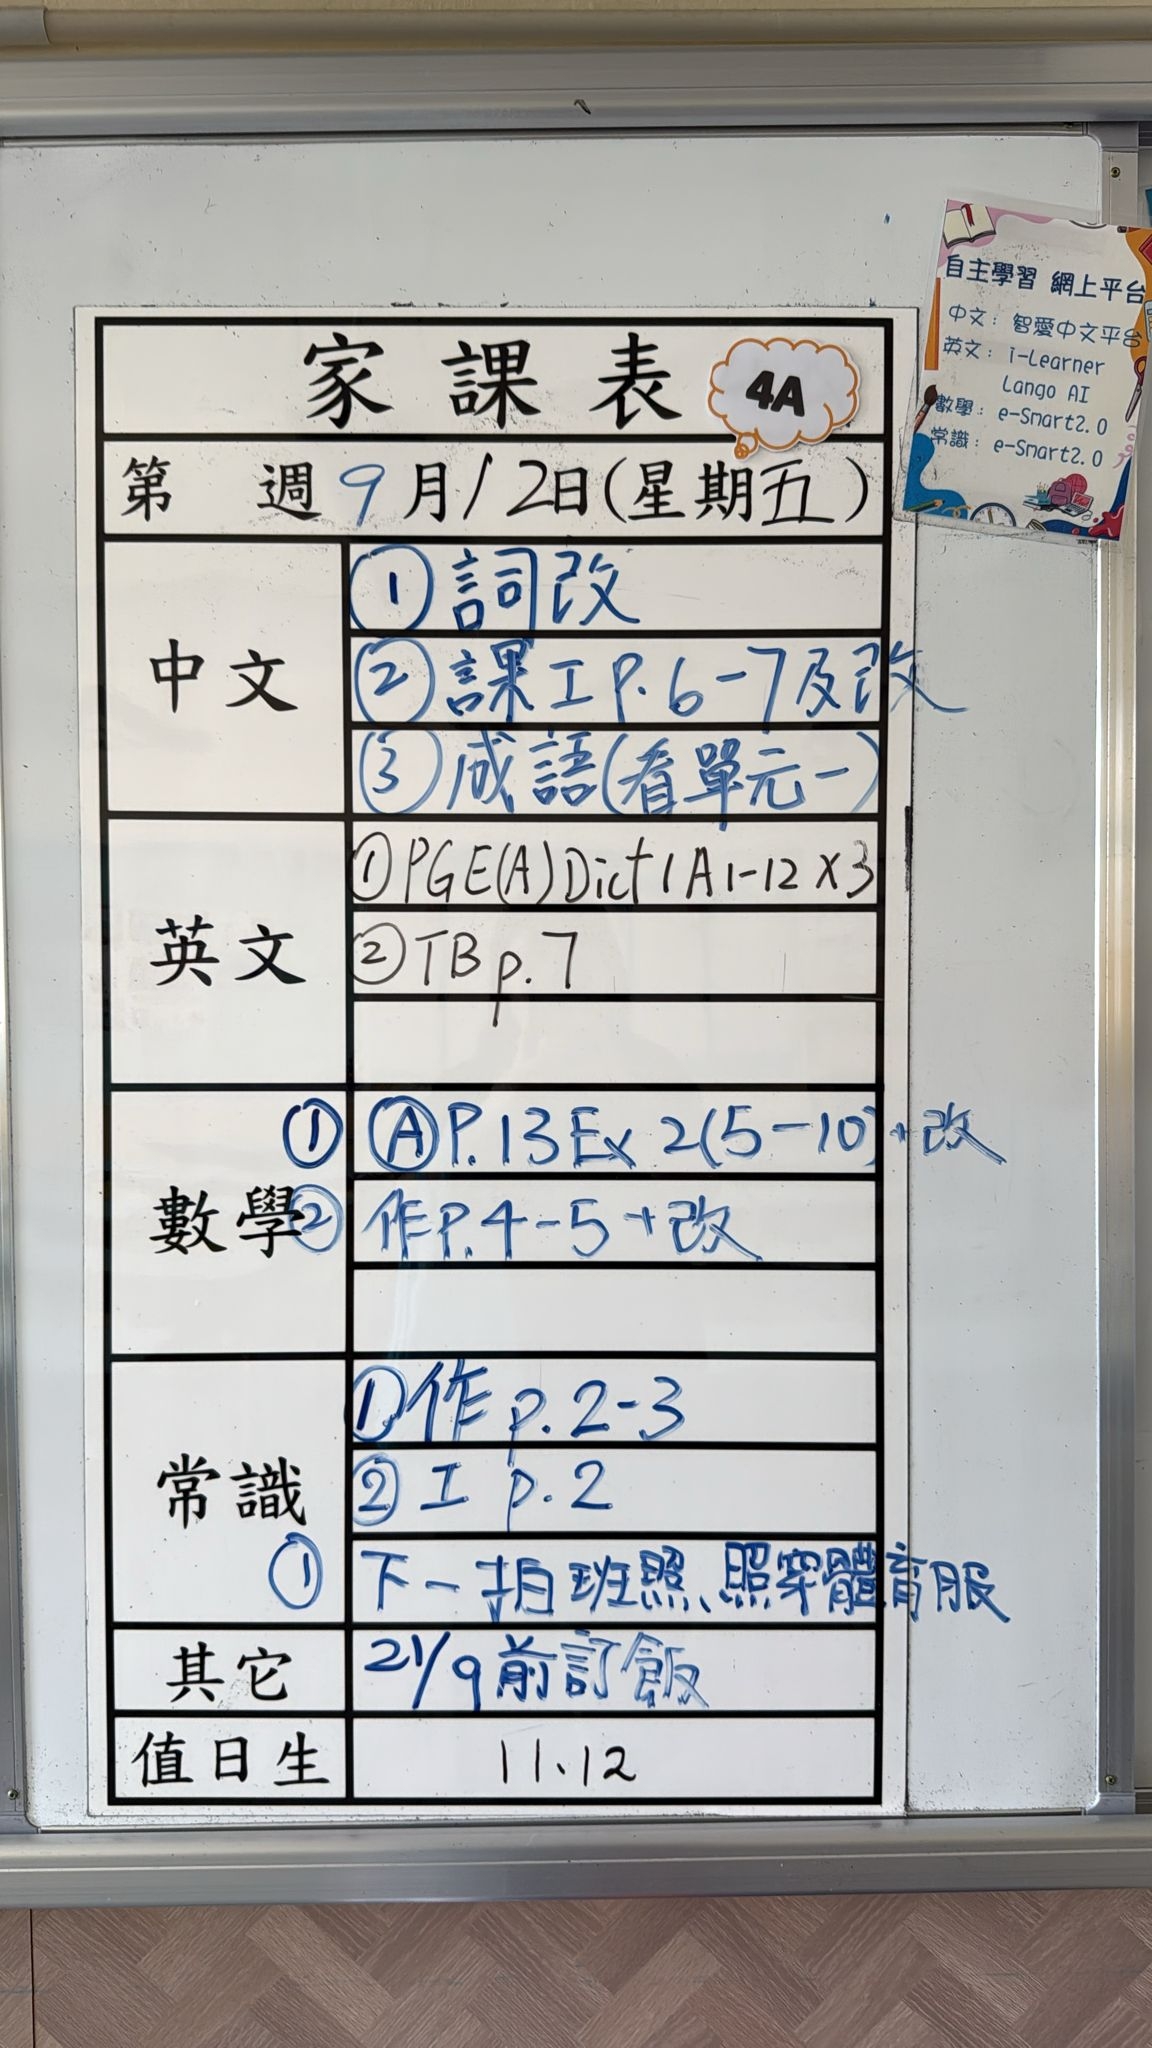 家課表 4A
第 週 9月12日(星期五)
中文
①詞改
②課工P.6-7及改
③成語(看單元一)
英文
①PGE(A)Dict1A1-12x3
②TBp.7
數學
① ⒶP.13Ex2(5-10)+改
② 作P.4-5+改
常識
①作p.2-3
②工p.2
① 下一拍班照、照穿體育服
其它
21/9前訂飯
值日生
11、12
自主學習 網上平台
中文：智愛中文平台
英文：i-Learner
Lango AI
數學：e-Smart2.0
常識：e-Smart2.0